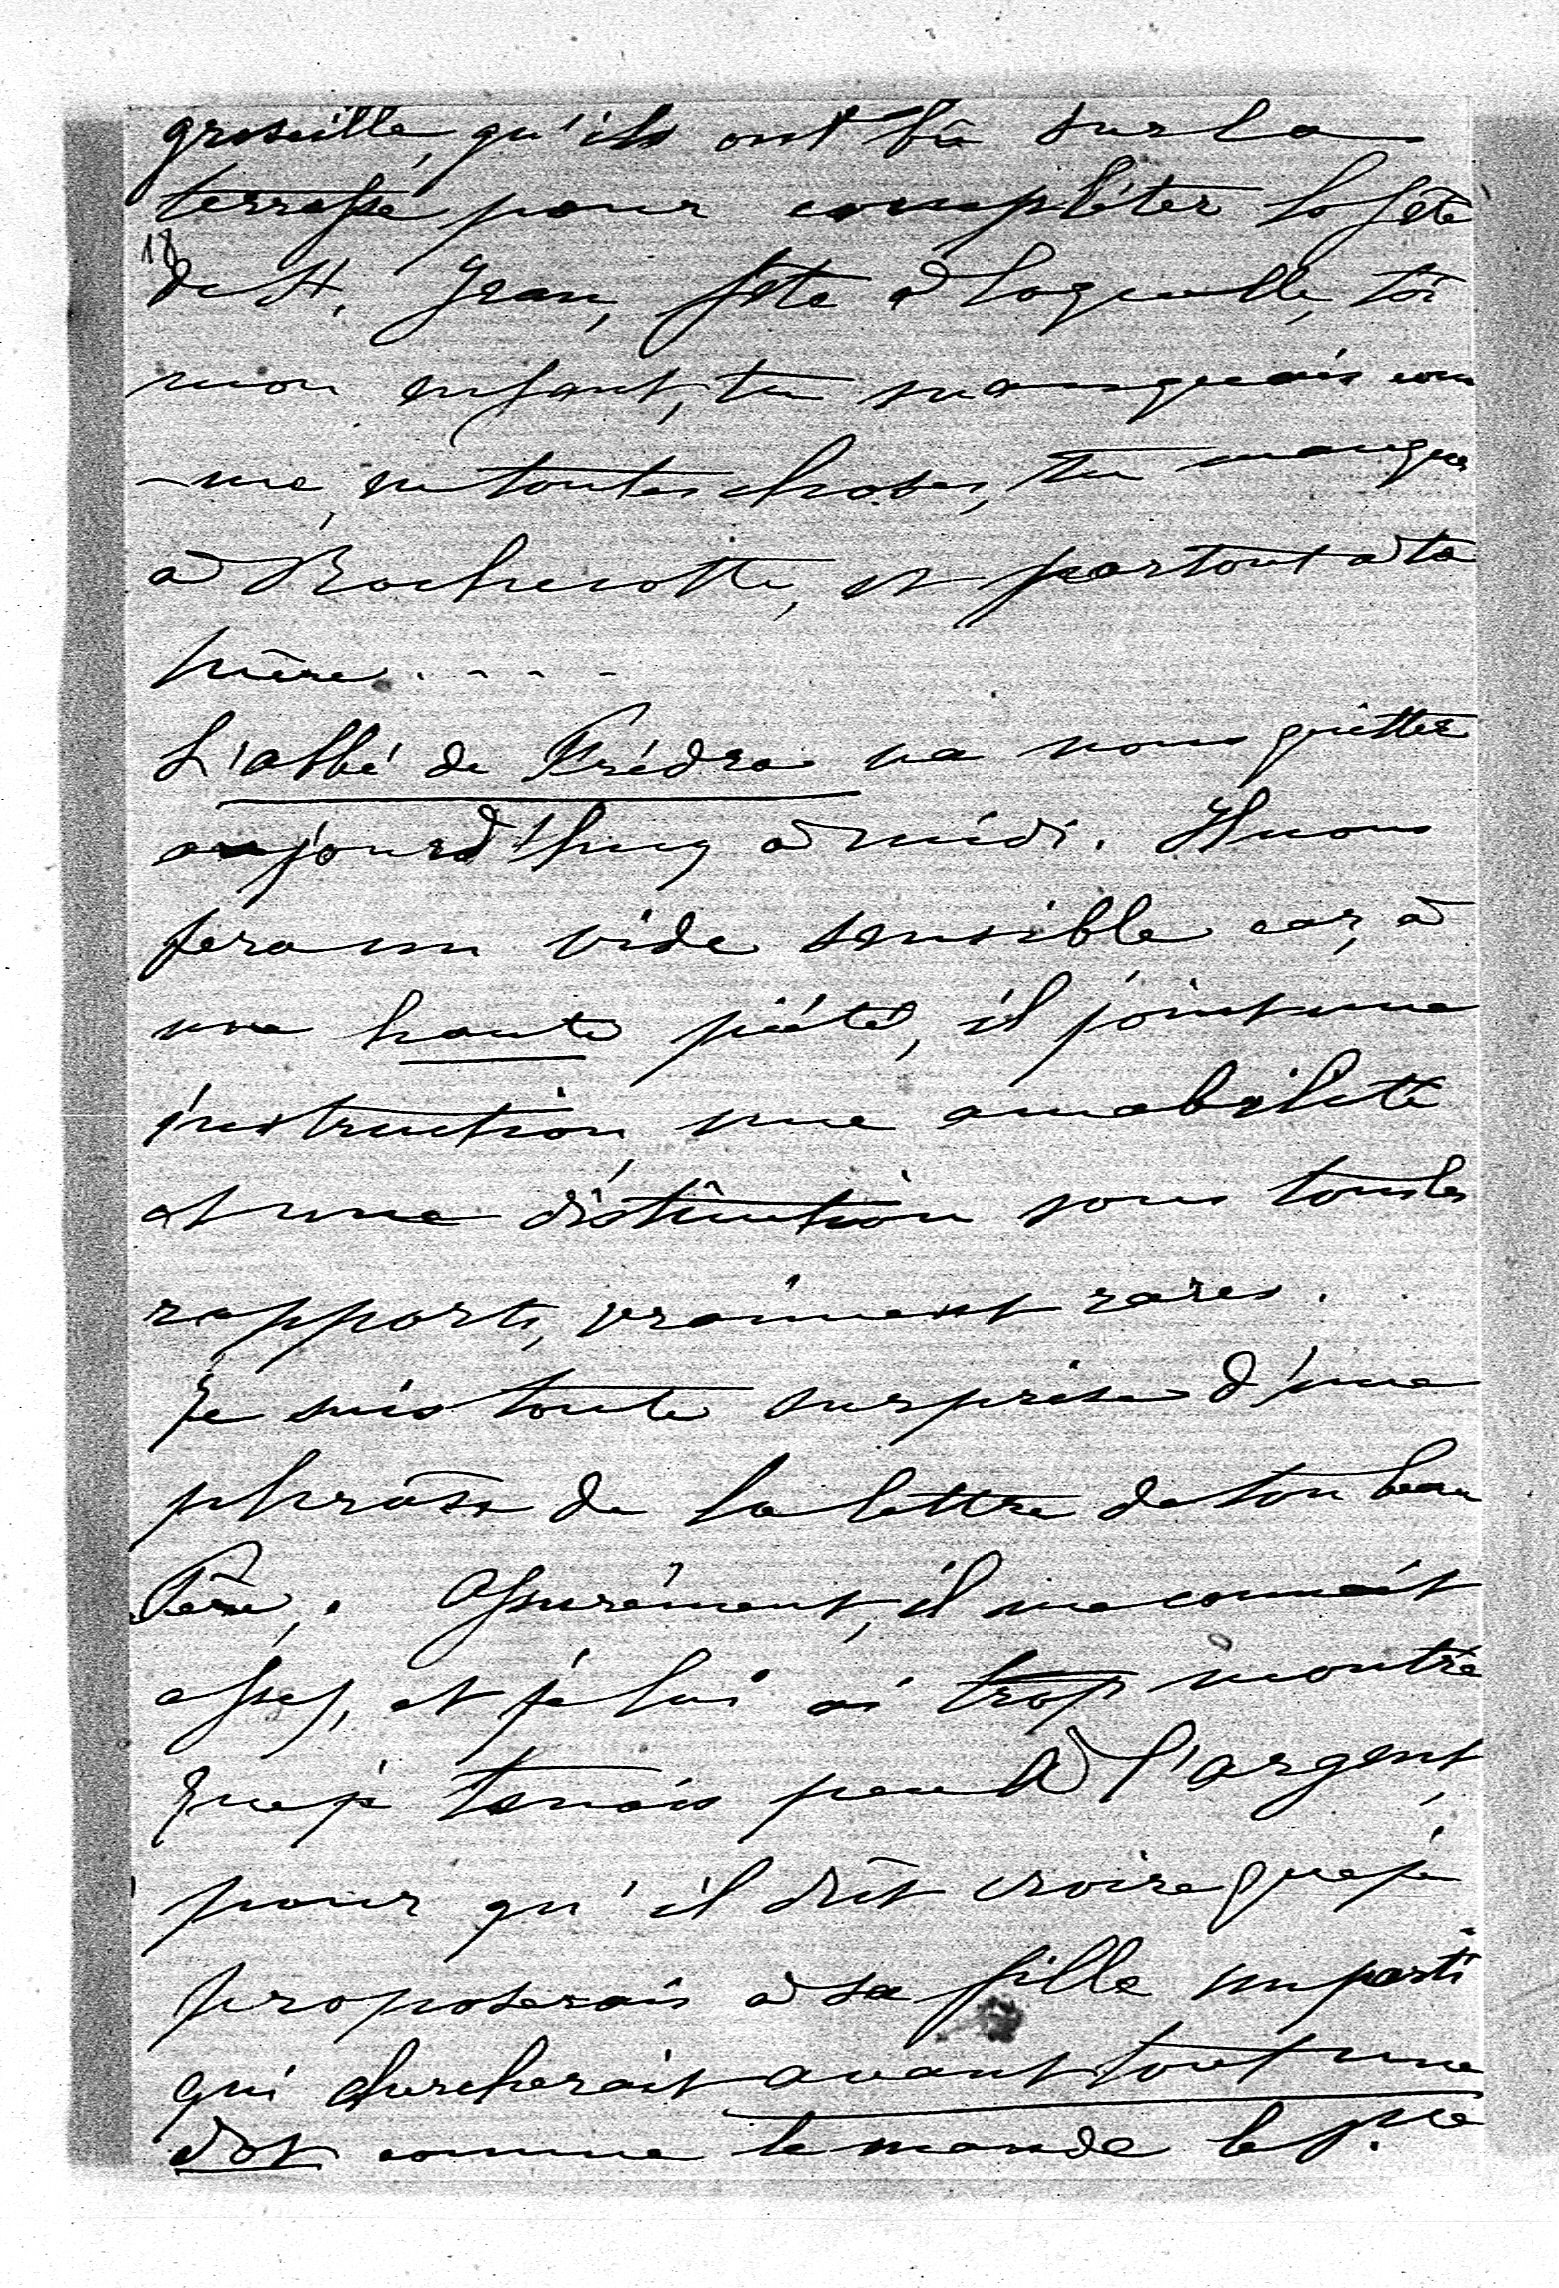 groseille, qu'ils ont bû sur la
terrasse pour complèter la fête
18
de St. Jean, fête à laquelle, toi
mon enfant, tu manquais com
-me, en toutes choses, tu manques
à Rochecotte, et partout à ta
mère. - - - -
L'abbé de va nous quitter
aujourd'huy à midi. Il nous
fera un vide sensible car, à
une haute piété, il joint une
instruction, une amabilité
et une distinction sous tous les
rapports, vraiment rares.
Je suis toute surprise d'une
phrâse de la lettre de ton beau
Père,. Assurément, il me connait
assez, et je lui ai trop montré
que je tenais peu à l'argent,
pour qu'il dût croire que je
proposerais à sa fille un parti
qui chercherait avant tout une
dot comme le mande le